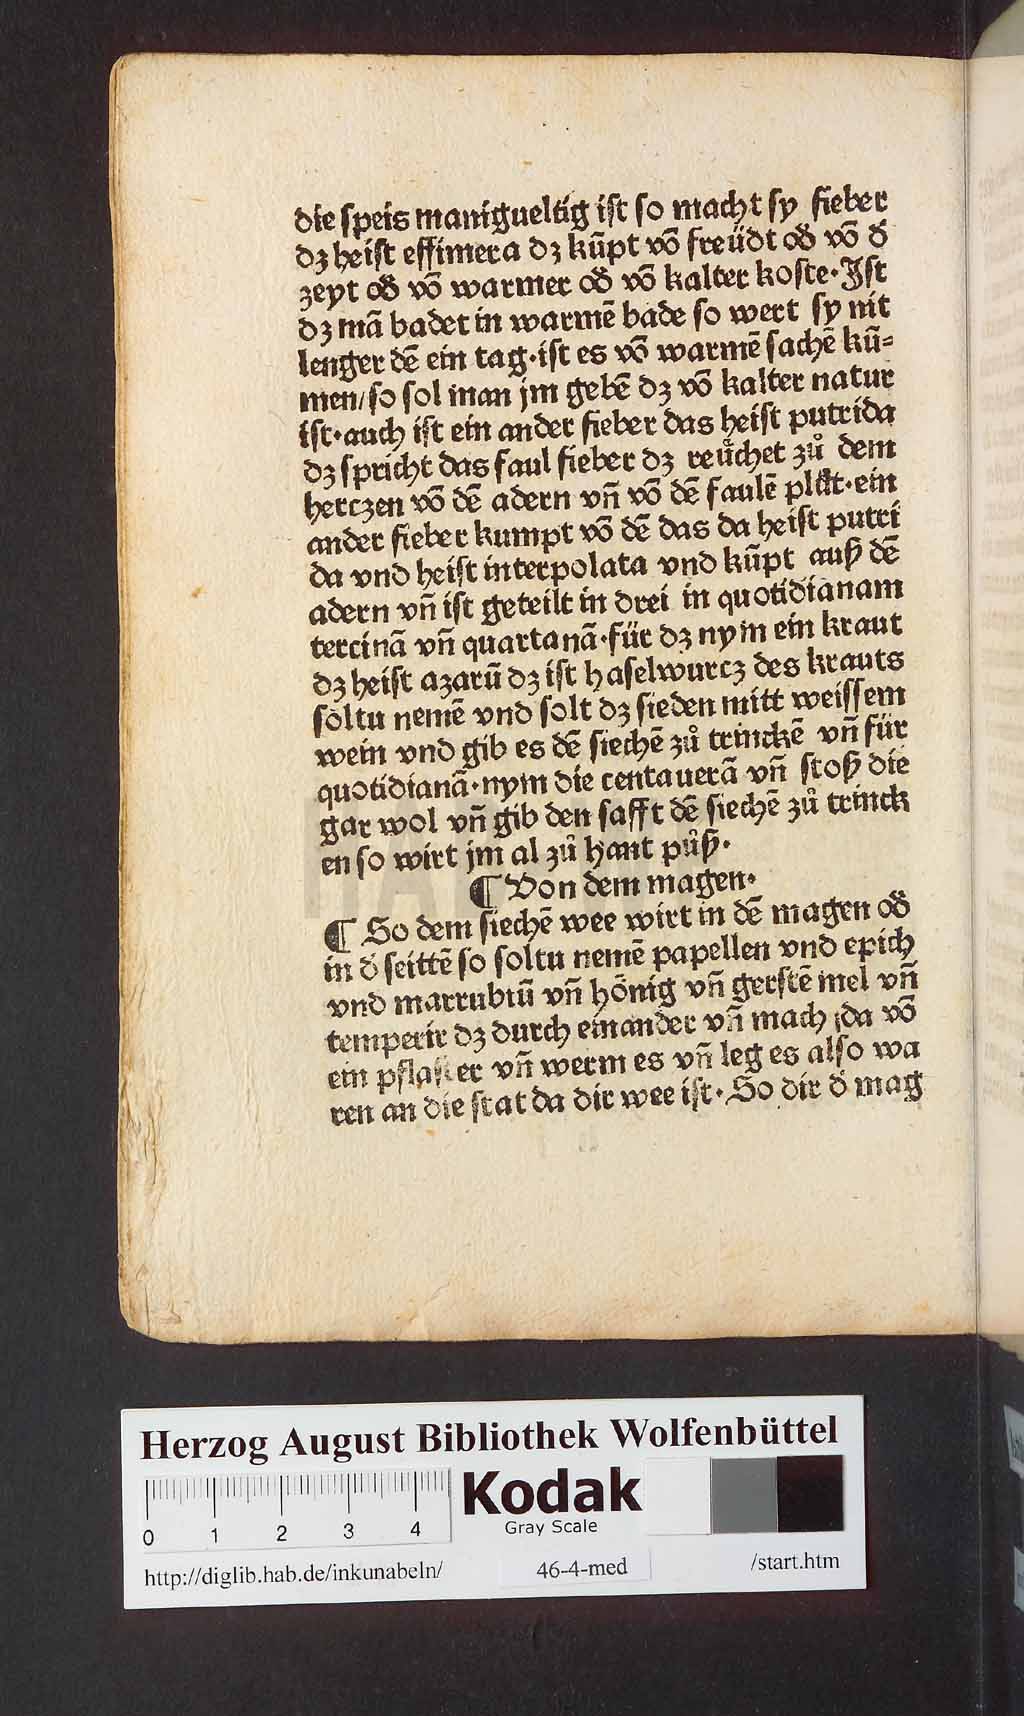 die speis manigueltig ist so macht sy fieber
dz heist effimera dz kūpt vō freüdt oď vō ď
zeyt oď vō warmer oď vō kalter koste·Ist
dz mā badet in warmē bade so wert sy nit
lenger dē ein tag·ist es vō warmē sachē kū-
men/so sol man jm gebē dz vō kalter natur
ist·auch ist ein ander fieber das heist putrida
dz spricht das faul fieber dz reuͤchet zuͦ dem
herczen vō dē adern vn̄ vō dē faulē pluͦt·ein
ander fieber kumpt vō dē das da heist putri
da vnd heist interpolata vnd kūpt auß dē
adern vn̄ ist geteilt in drei in quotidianam
tercinā vn̄ quartanā·für dz nym ein kraut
dz heist azarū dz ist haselwurcz des krauts
söltu nemē vnd solt dz sieden mitt weissem
wein vnd gib es dē siechē zuͦ trinckē vn̄ für
quotidianā·nym die centauerā vn̄ stoß die
gar wol vn̄ gib den safft dē siechē zuͦ trinck
en so wirt jm al zuͦ hant puͦß·
¶ Von dem magen·
¶ So dem siechē wee wirt in dē magen oď
in ď seittē so soltu nemē papellen vnd epich
vnd marrubiū vn̄ hönig vn̄ gerstē mel vn̄
temperir dz durch einander vn̄ mach da vō
ein pflaster vn̄ werm es vn̄ leg es also wa
ren an die stat da dir wee ist·So dir ď mag
Herzog August Bibliothek Wolfenbüttel
0 1 2 3 4
Kodak
Gray Scale
http://diglib.hab.de/inkunabeln/ 46-4-med /start.htm